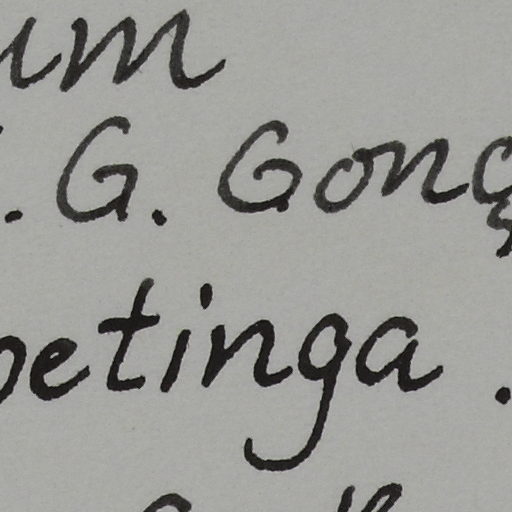 um
. G. Gonç
petinga.